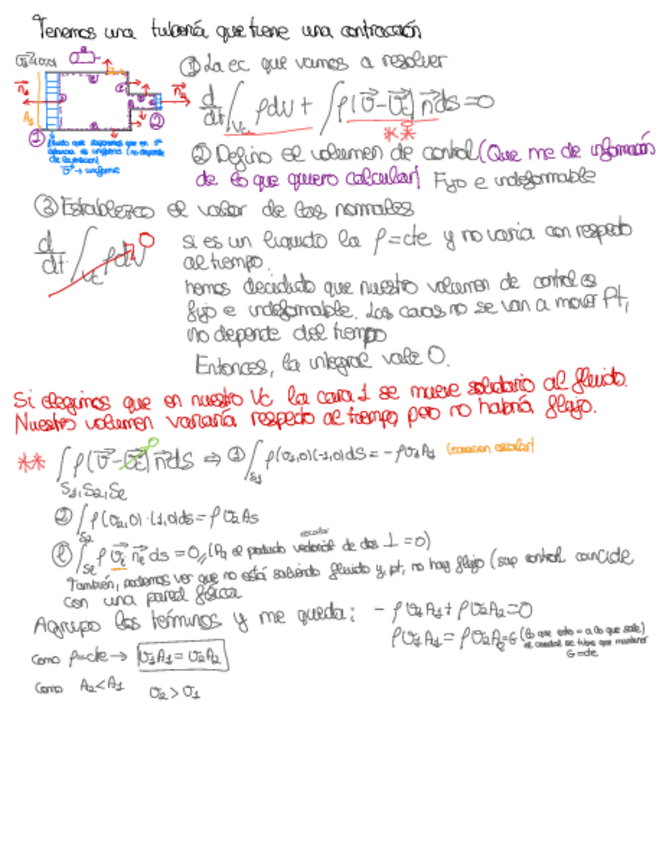 Tenemos una tubería que tiene una contracción
① La ec que vamos a resolver
d/dt ∫Vc ρdv + ∫ρ[v⃗-v⃗c] n⃗ds = 0
**
② Defino el volumen de control (Que me de información
de lo que quiero calcular) Fijo e indeformable
n⃗
A₁
①
②
v⃗ → uniforme
③ Establezco el valor de las normales
d/dt ∫Vc ρdv 0
si es un líquido la ρ=cte y no varia con respecto
al tiempo.
hemos decidido que nuestro volumen de control es
fijo e indeformable. Las caras no se van a mover Pt,
no depende del tiempo
Entonces, la integral vale 0.
Si elegimos que en nuestro Vc la cara 1 se mueve solidario al fluido.
Nuestro volumen variaría respecto al tiempo, pero no habría flujo.
** ∫S₁,S₂,Sl ρ[v⃗-v⃗c] n⃗ds ⇒ ① ∫S₁ ρ(v₁,0)(-1,0)dS = -ρv₁A₁ (ecuacion escalar)
② ∫S₂ ρ(v₂,0)·(1,0)ds = ρv₂A₂
ⓛ ∫Sl ρ v⃗l n⃗l ds = 0, (Pq el producto vectorial de dos ⊥ = 0)
escalar
También, podemos ver que no está saliendo fluido y, pt, no hay flujo (sup control coincide
con una pared física
Agrupo los términos y me queda: -ρv₁A₁ + ρv₂A₂ = 0
ρv₁A₁ = ρv₂A₂ = G (lo que entra = a lo que sale)
el caudal se tiene que mantener
G=cte
como ρ=cte → v₁A₁ = v₂A₂
como A₂<A₁ v₂>v₁